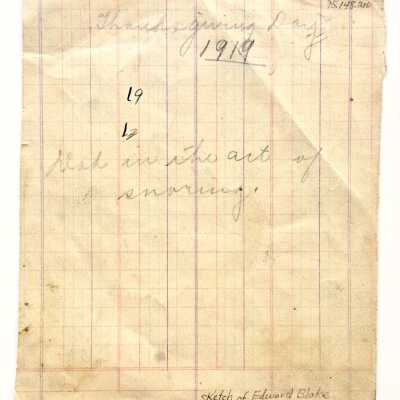 75.148.210
Thanksgiving Day
1919
19
19
Dad in the act of
snoring.
Sketch of Edward Blake